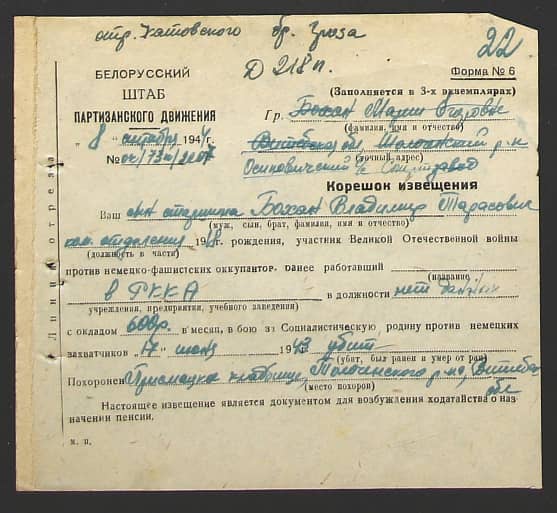 отр. Котовского бр. Гроза
22
Д 218 п.
Форма № 6
БЕЛОРУССКИЙ
ШТАБ
ПАРТИЗАНСКОГО ДВИЖЕНИЯ
(Заполняется в 3-х экземплярах)
Гр. Бохан Марии Егоровне
(фамилия, имя и отчество)
" 8 " октября 1944 г.
Витебская обл., Толочинский р-н
(точный адрес)
№
Осиповичский Спиртзавод
Корешок извещения
Ваш сын старшина Бохан Владимир Тарасович
(муж, сын, брат, фамилия, имя и отчество)
ком. отделения 1918 г. рождения, участник Великой Отечественной войны
(должность в части)
против немецко-фашистских оккупантов, ранее работавший
(название
в РККА в должности нет данных
учреждения, предприятия, учебного заведения)
с окладом 600р. в месяц, в бою за Социалистическую родину против немецких
захватчиков " 17 " 1943 убит
(убит, был ранен и умер от ран)
Похоронен кладбище, Толочинского р-на, Витебс.
обл
(место похорон)
Настоящее извещение является документом для возбуждения ходатайства о наз-
начении пенсии.
м. п.
Линия отреза